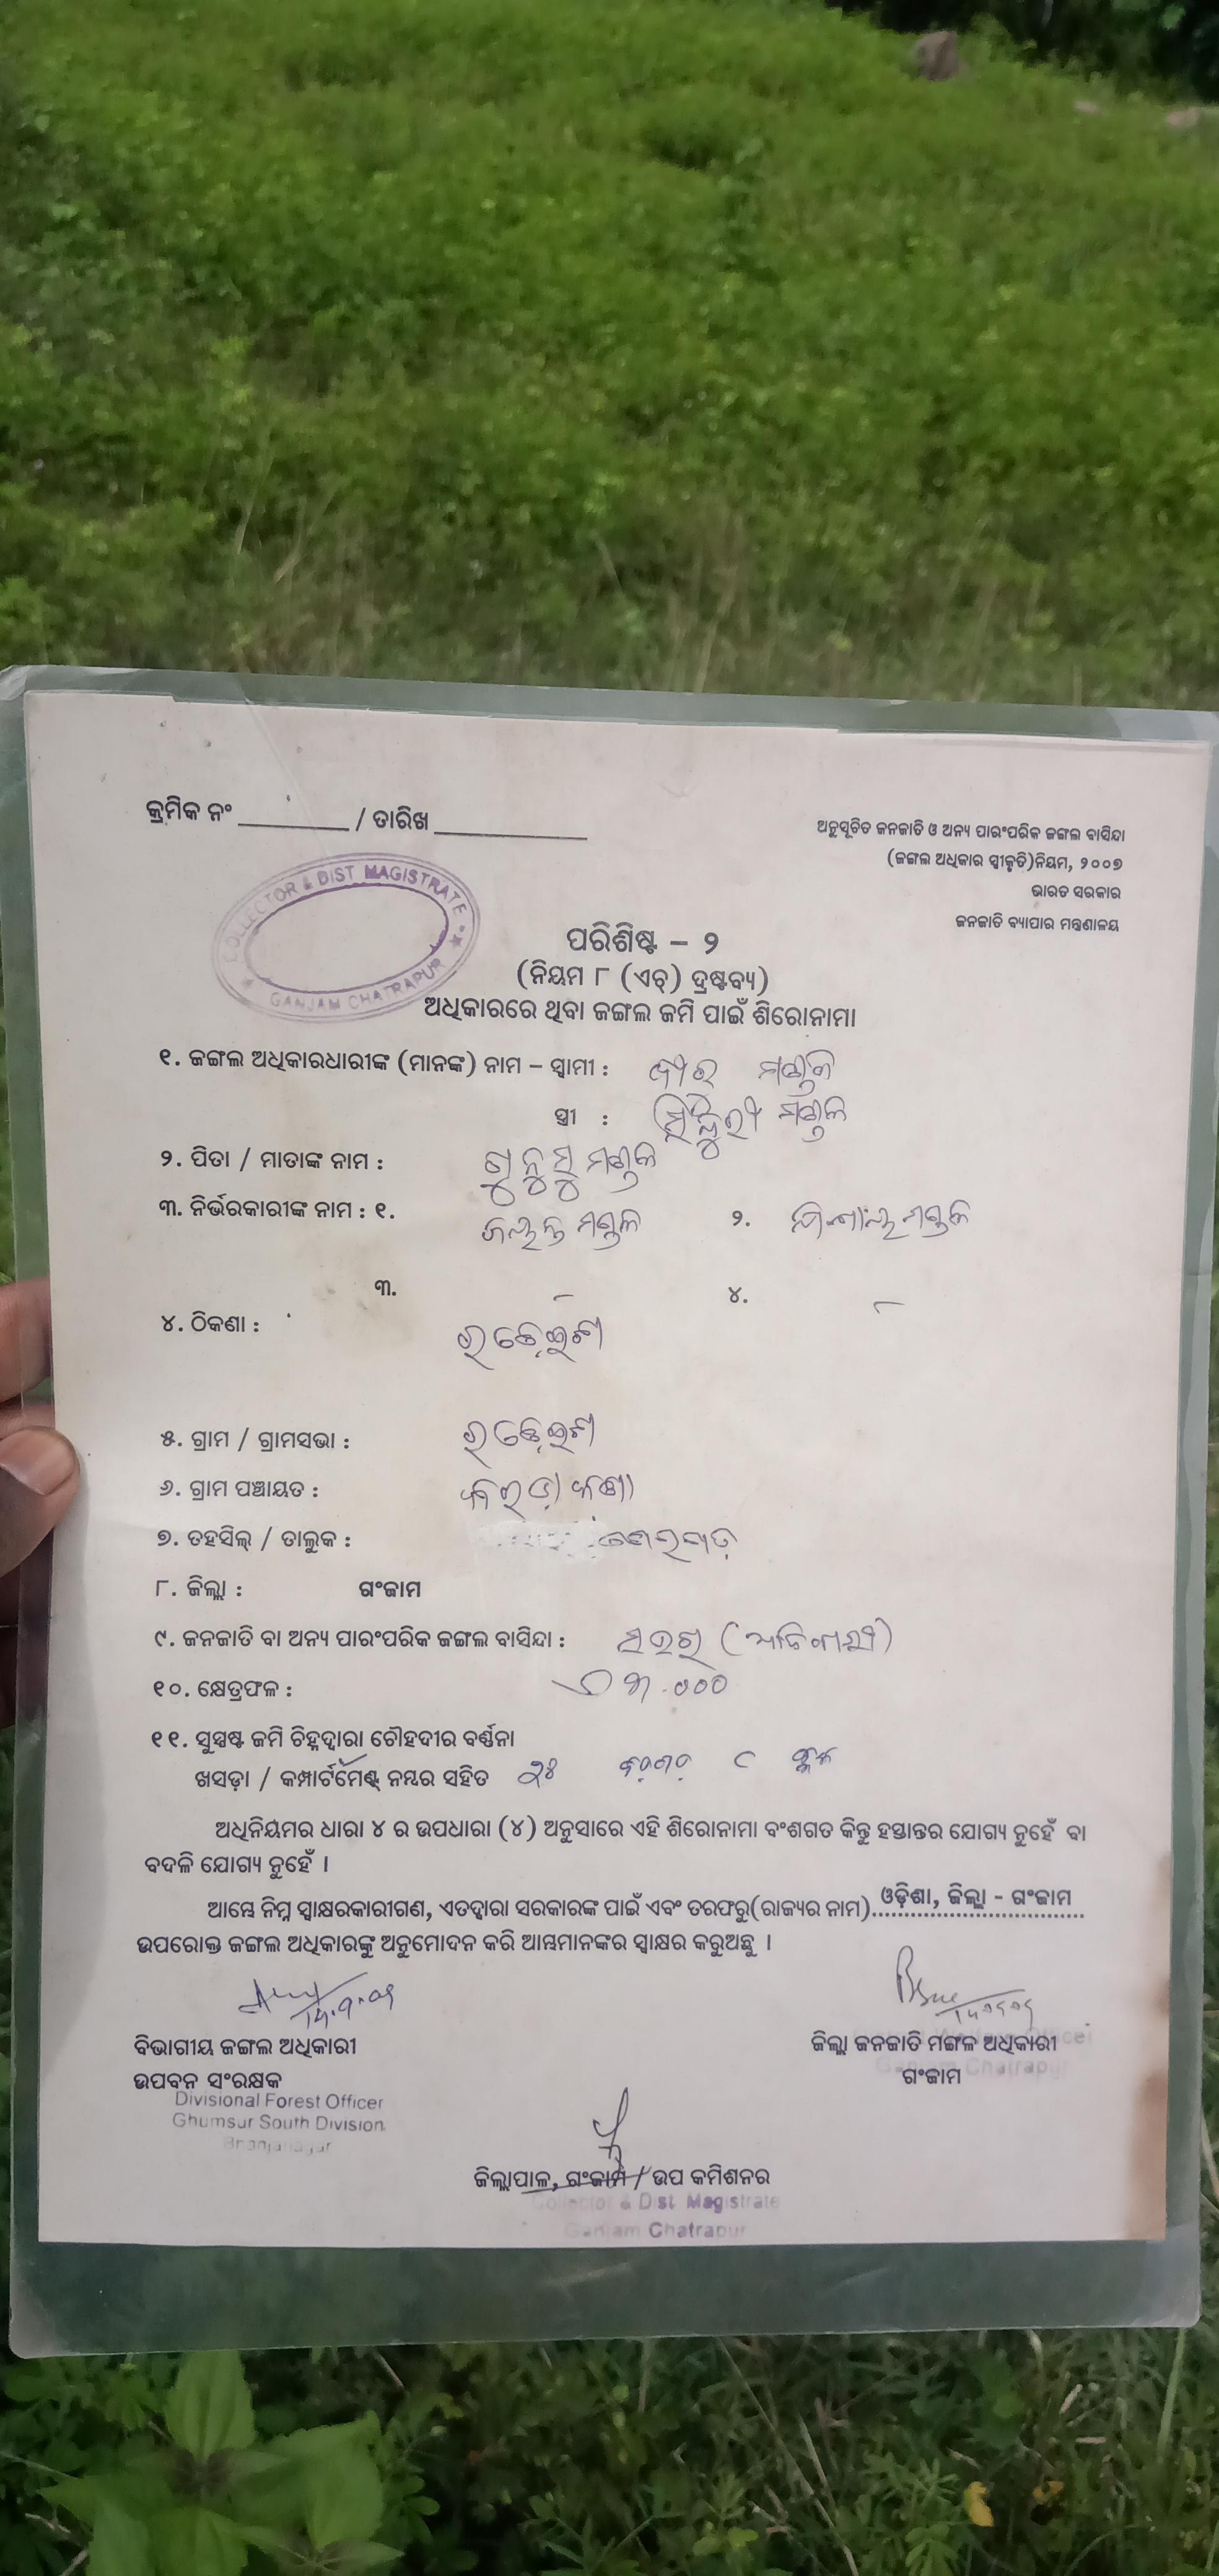 କ୍ରମିକ ନଂ ________ / ତାରିଖ ___________
ଅନୁସୂଚିତ ଜନଜାତି ଓ ଅନ୍ୟ ପାରଂପରିକ ଜଙ୍ଗଲ ବାସିନ୍ଦା
(ଜଙ୍ଗଲ ଅଧିକାର ସ୍ୱୀକୃତି) ନିୟମ, ୨୦୦୭
ଭାରତ ସରକାର
ଜନଜାତି ବ୍ୟାପାର ମନ୍ତ୍ରଣାଳୟ
COLLECTOR & DIST MAGISTRATE
GANJAM CHATRAPUR
ପରିଶିଷ୍ଟ – ୨
(ନିୟମ ୮ (ଏଚ୍) ଦ୍ରଷ୍ଟବ୍ୟ)
ଅଧିକାରରେ ଥିବା ଜଙ୍ଗଲ ଜମି ପାଇଁ ଶିରୋନାମା
୧. ଜଙ୍ଗଲ ଅଧିକାରଧାରୀଙ୍କ (ମାନଙ୍କ) ନାମ – ସ୍ୱାମୀ : ମଣ୍ଡଳ
ସ୍ତ୍ରୀ : ମଣ୍ଡଳ
୨. ପିତା / ମାତାଙ୍କ ନାମ : ମଣ୍ଡଳ
୩. ନିର୍ଭରକାରୀଙ୍କ ନାମ : ୧. ମଣ୍ଡଳ ୨. ମଣ୍ଡଳ
୩. – ୪. –
୪. ଠିକଣା :
୫. ଗ୍ରାମ / ଗ୍ରାମସଭା :
୬. ଗ୍ରାମ ପଞ୍ଚାୟତ :
୭. ତହସିଲ୍ / ତାଲୁକ :
୮. ଜିଲ୍ଲା : ଗଂଜାମ
୯. ଜନଜାତି ବା ଅନ୍ୟ ପାରଂପରିକ ଜଙ୍ଗଲ ବାସିନ୍ଦା :
୧୦. କ୍ଷେତ୍ରଫଳ :
୧୧. ସୁସ୍ପଷ୍ଟ ଜମି ଚିହ୍ନଦ୍ୱାରା ଚୌହଦୀର ବର୍ଣ୍ଣନା
ଖସଡ଼ା / କମ୍ପାର୍ଟମେଣ୍ଟ୍ ନମ୍ବର ସହିତ
ଅଧିନିୟମର ଧାରା ୪ ର ଉପଧାରା (୪) ଅନୁସାରେ ଏହି ଶିରୋନାମା ବଂଶଗତ କିନ୍ତୁ ହସ୍ତାନ୍ତର ଯୋଗ୍ୟ ନୁହେଁ ବା
ବଦଳି ଯୋଗ୍ୟ ନୁହେଁ ।
ଆମ୍ଭେ ନିମ୍ନ ସ୍ୱାକ୍ଷରକାରୀଗଣ, ଏତଦ୍ୱାରା ସରକାରଙ୍କ ପାଇଁ ଏବଂ ତରଫରୁ (ରାଜ୍ୟର ନାମ) ଓଡ଼ିଶା, ଜିଲ୍ଲା - ଗଂଜାମ
ଉପରୋକ୍ତ ଜଙ୍ଗଲ ଅଧିକାରଙ୍କୁ ଅନୁମୋଦନ କରି ଆମ୍ଭମାନଙ୍କର ସ୍ୱାକ୍ଷର କରୁଅଛୁ ।
ବିଭାଗୀୟ ଜଙ୍ଗଲ ଅଧିକାରୀ
ଉପବନ ସଂରକ୍ଷକ
Divisional Forest Officer
Ghumsur South Division
Bhanjanagar
ଜିଲ୍ଲା ଜନଜାତି ମଙ୍ଗଳ ଅଧିକାରୀ
ଗଂଜାମ
Ganjam Chatrapur
ଜିଲ୍ଲାପାଳ, ଗଂଜାମ / ଉପ କମିଶନର
Collector & Dist. Magistrate
Ganjam Chatrapur